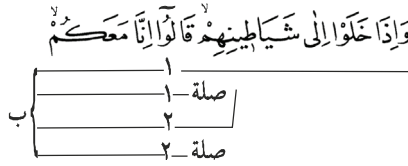 وَاِذَا خَلَوْا اِلٰى شَيَاطٖينِهِمْۙ قَالُٓوا اِنَّا مَعَكُمْۙ
١
صلة ١
ب
٢
صلة ٢